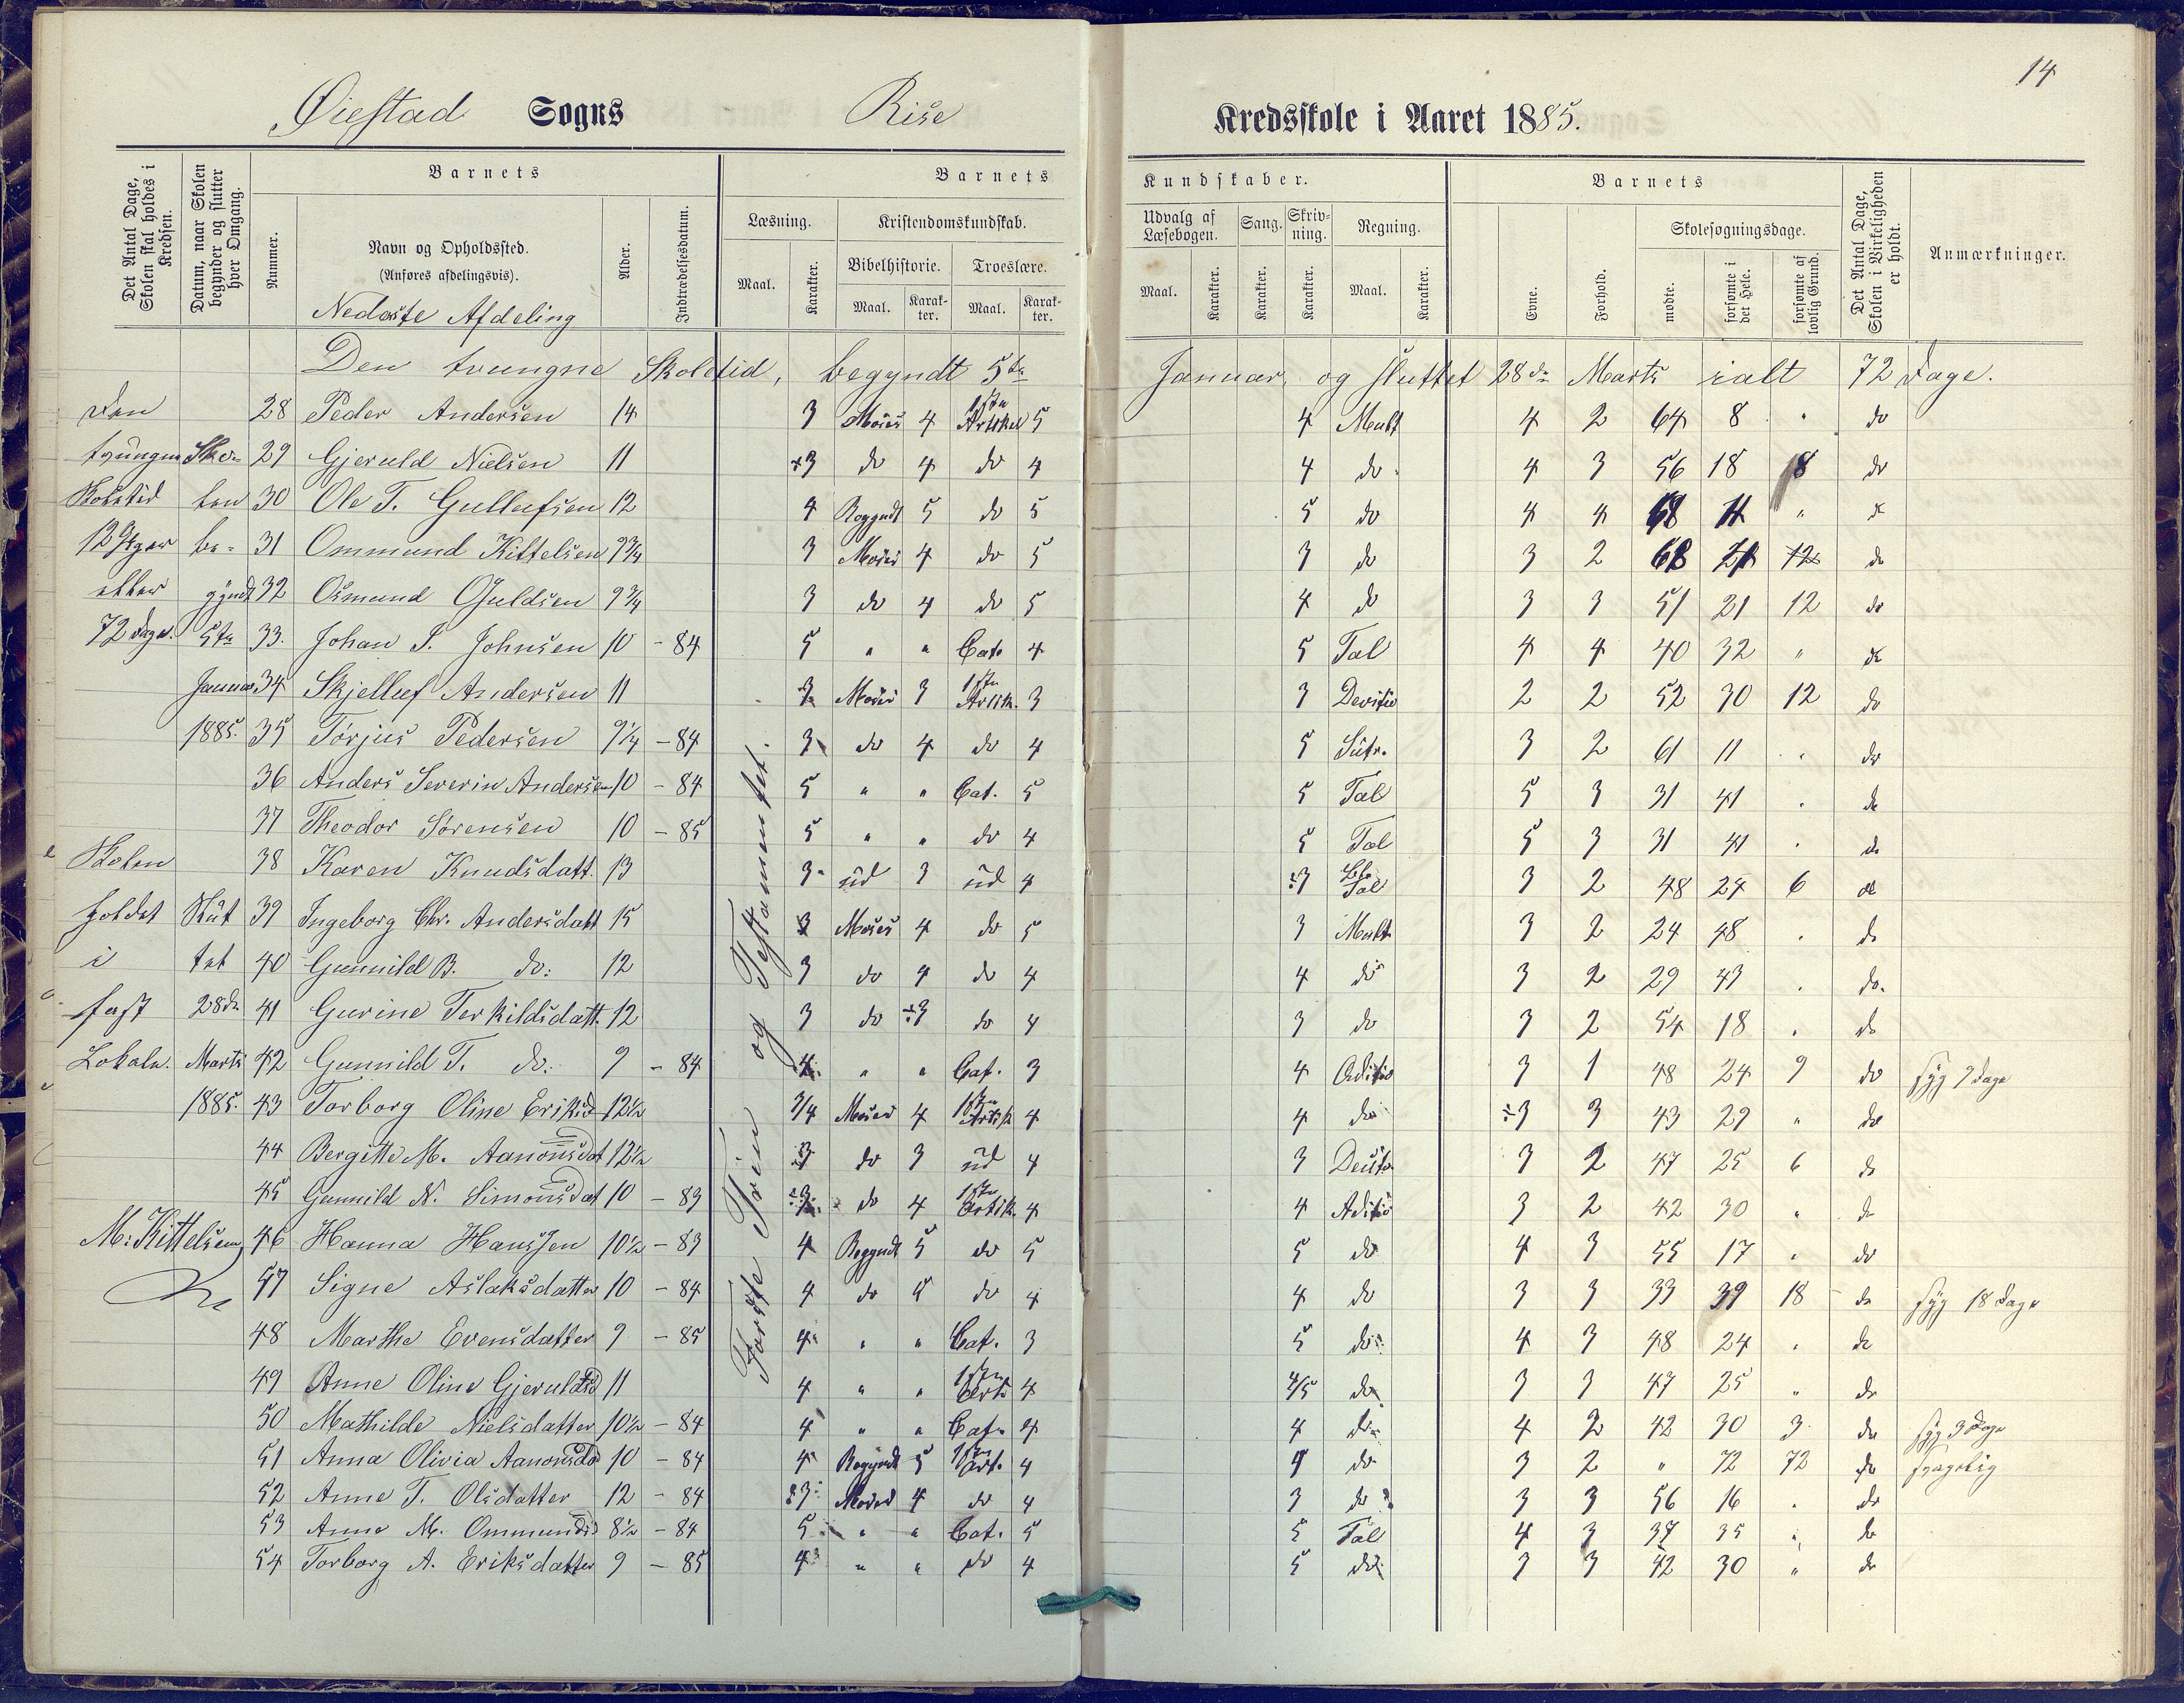 14
Øiestad Sogns Rise Kredsskole i Aaret 1885.
Det Antal Dage, Skolen skal holdes i Kredsen.
Datum, naar Skolen begynder og slutter hver Omgang.
Barnets
Nummer.
Navn og Opholdssted.
(Anføres afdelingsvis).
Alder.
Indtrædelsesdatum.
Barnets Kundskaber.
Læsning.
Maal. Karakter.
Kristendomskundskab.
Bibelhistorie. Troeslære.
Maal. Karakter. Maal. Karakter.
Udvalg af Læsebogen.
Maal. Karakter.
Sang.
Karakter.
Skrivning.
Karakter.
Regning.
Maal. Karakter.
Barnets
Evne. Forhold.
Skolesøgningsdage.
mødte. forsømte i det Hele. forsømte af lovlig Grund.
Det Antal Dage, Skolen i Virkeligheden er holdt.
Anmærkninger.
Nederste Afdeling
Den tvungne Skoletid, begyndt 5te Januar og sluttet 28de Marts ialt 72 Dage.
Den
tvungne
Skoletid
12 Uger
eller
72 Dage.
Sko-
len
be-
gyndt
5te
Januar
1885.
Skolen
holdet
i
fast
Lokale.
Slut
tet
28de
Marts
1885.
M: Kittelsen
Første Trin og Testamentet.
28 Peder Andersen 14 3 Moses 4 1ste Artikel 5 4 Mult 4 2 64 8 " do
29 Gjeruld Nielsen 11 ÷3 do 4 do 4 4 do 4 3 56 18 8 do
30 Ole T. Gullufsen 12 4 Begyndt 5 do 5 5 do 4 4 68 4 " do
31 Ommund Kittelsen 9 3/4 3 Moses 4 do 5 3 do 3 2 68 4 12 do
32 Osmund Ojuldsen 9 3/4 3 do 4 do 5 4 do 3 3 51 21 12 do
33. Johan S. Johnsen 10 - 84 5 " " Cat. 4 5 Tal 4 4 40 32 " do
34 Skjelluf Andersen 11 3 Moses 3 1ste Artik. 3 3 Devisio 2 2 52 30 12 do
35 Tørjus Pedersen 9 1/4 - 84 3 do 4 do 4 5 Sutr. 3 2 61 11 " do
36 Anders Severin Andersen 10 - 84 5 " " Cat. 5 5 Tal 5 3 31 41 " do
37 Theodor Sørensen 10 - 85 5 " " do 4 5 Tal 5 3 31 41 " do
38 Karen Knudsdatt. 13 3 ud 3 ud 4 ÷3 Tal 3 2 48 24 6 do
39 Ingeborg Chr. Andersdatt 15 3 Moses 4 do 5 3 Mult. 3 2 24 48 " do
40 Gunnild B. do: 12 3 do 4 do 4 4 do 3 2 29 43 " do.
41 Gurine Terkildsdatt. 12 3 do ÷3 do 4 3 do 3 2 54 18 " do
42 Gunnild T. do. 9 - 84 4 " " Cat. 3 4 Aditio 3 1 48 24 9 do syg 9 dage
43 Torborg Oline Eriksd 12 1/2 3/4 Moses 4 1ste Artik 4 4 do ÷3 3 43 29 " do
44 Bergitte M. Aanonsdat 12 1/2 3 do 3 ud 4 3 3 2 47 25 6 do
45 Gunnild N. Simonsdat 10 - 83 ÷3 do 4 1ste Artik. 4 4 Aditio 3 2 42 30 " do
46 Hanna Hanssen 10 1/2 - 83 4 Begyndt 5 do 5 5 do 4 3 55 17 " do
47 Signe Aslaksdatter 10 - 84 4 do 5 do 4 4 do 3 3 33 39 18 do syg 18 Dage
48 Marthe Evensdatter 9 - 85 4 " " Cat. 3 5 do 4 3 48 24 " do
49 Anne Oline Gjeruldsd 11 4 " " 1ste Arti 4 4/5 do 3 3 47 25 " do
50 Mathilde Nielsdatter 10 1/2 - 84 4 " " Cat. 4 4 do 4 2 42 30 3 do syg 3 Dage
51 Anna Olivia Aanonsda 10 - 84 4 Begyndt 5 1ste Art. 4 4 do 3 2 " 72 72 do svagelig
52 Anne T. Olsdatter 12 - 84 ÷3 Moses 4 do 4 3 do 3 3 56 16 " do
53 Anne M. Ommundsd 8 1/2 - 84 5 " " Cat. 5 5 Tal 4 3 37 35 " do
54 Torborg A. Eriksdatter 9 - 85 4 " " do 4 5 do 3 3 42 30 " do